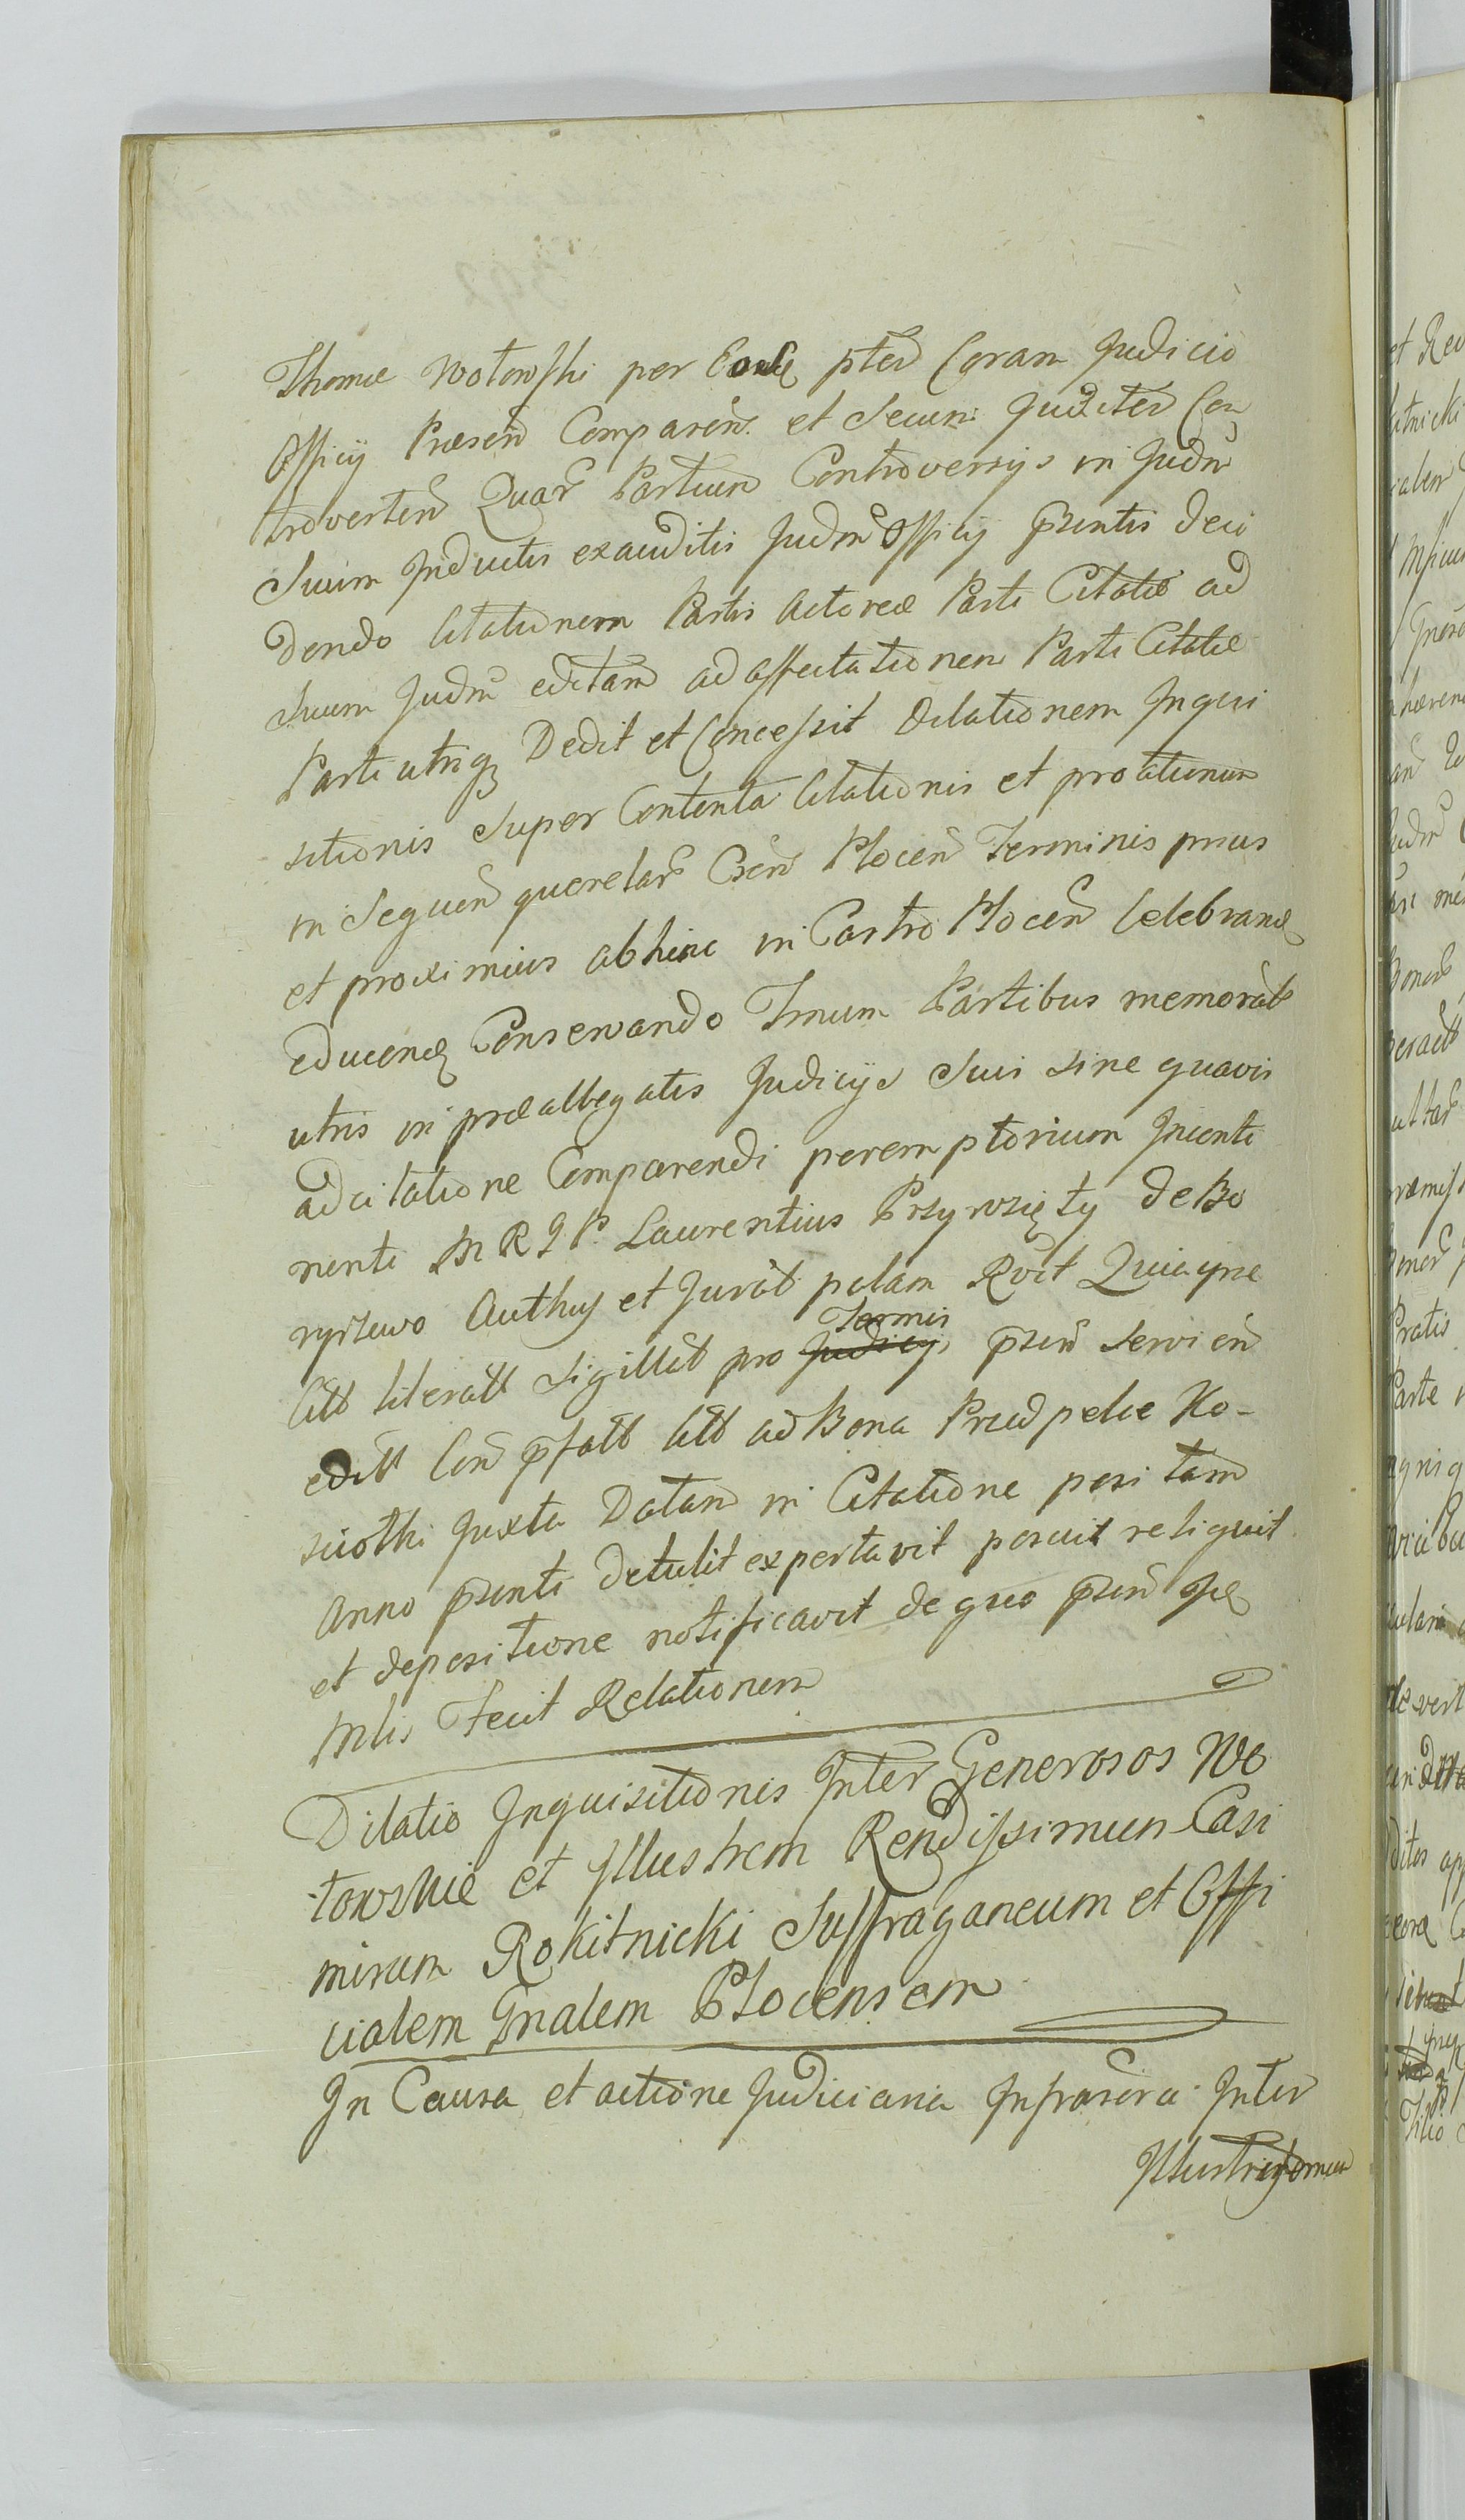 Thomæ Wotowski per Eond pted Coram Judicio
Officij Præsen Comparen et Secum Juditer Con
troverten Quar Partium Controversijs in Judm
Suum Inductis exauditis Judm Officij Psentis deci
dendo Citationem Partis Actoreæ Parti Citatæ ad
Suum Judm editam ad affectationem Parti Citatæ
Parti utriq Dedit et Concessit Dilationem Inqui
sitionis Super Contenta Citationis et probationum
in Sequen querelar Csen Plocen Terminis prius
et proximius abhinc in Castro Plocen Celebrand
educend Conservando Tmum Partibus memorat
utris in præallegatis Judicijs Suis sine quavis
adcitatione Comparendi peremptorium Inconti
nenti M R J P. Laurentius Przywzięty de Bo
ryszewo Authus et Jurat palam Rvit Quia ipse
Citt literatt Sigillat pro Judicijs Termis psen servien
editt Con pfatt Citt ad Bona Præd pelie Ko-
siothi Juxta Datam in Citatione positam
Anno psenti Detulit expertavit posuit reliquit
et depositione notificavit de quo psen
Mlis Fecit Relationem
Dilatio Inquisitionis Inter Generosos Wo
towskie et Illustrem Rendissimum Casi
mirum Rokitnicki Suffraganeum et Offi
cialem Gnalem Plocensem
In Causa et actione Judiciaria Infrascra Inter
Illustrissimum